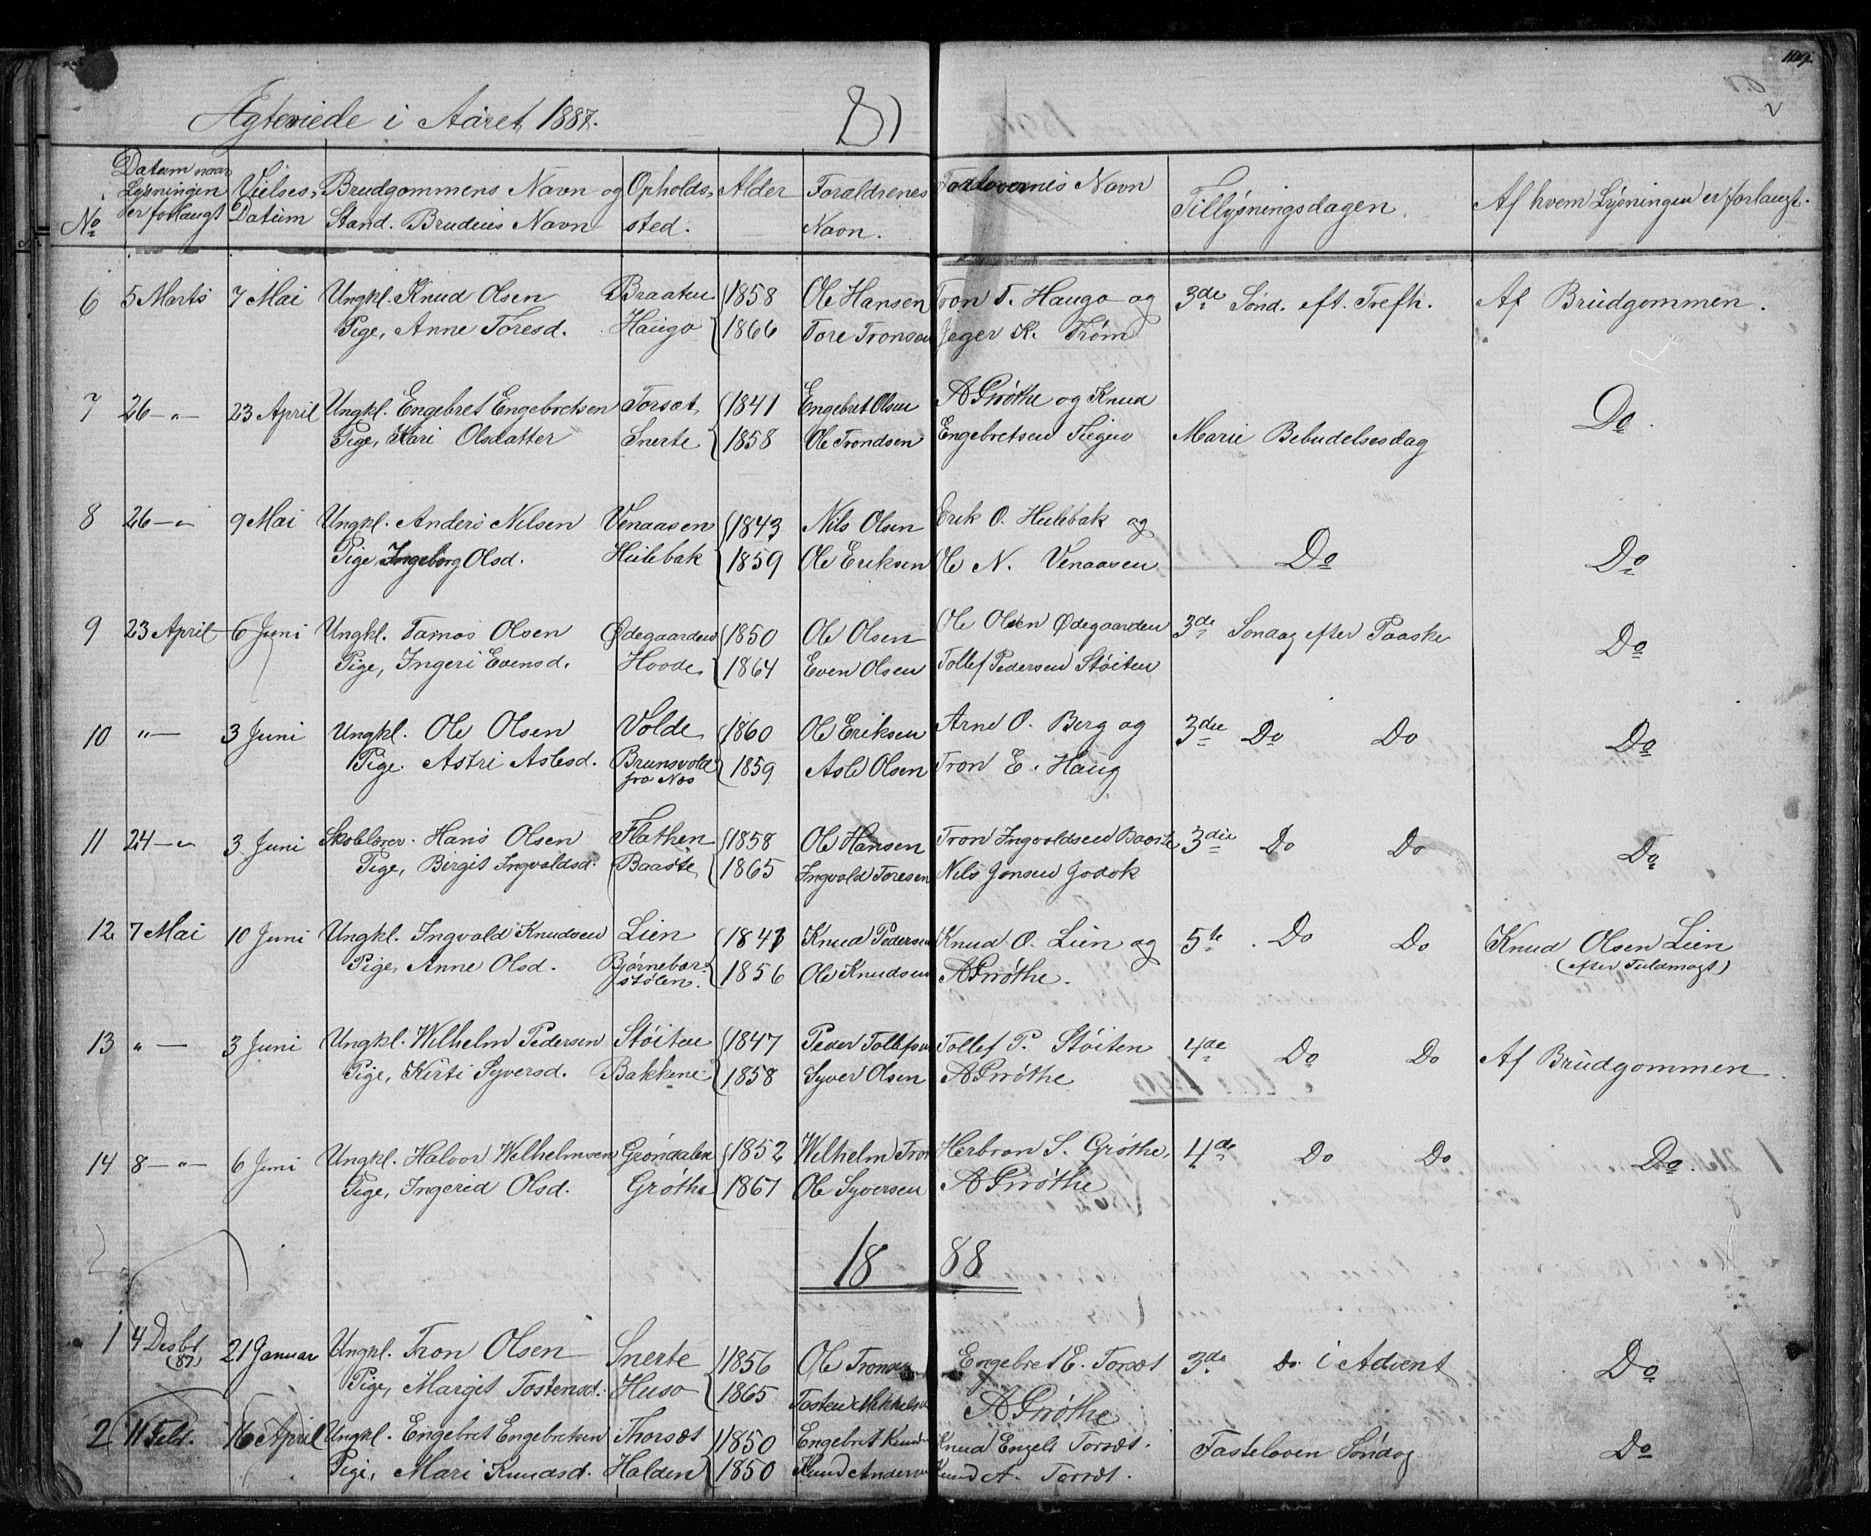 109.
Ægteviede i Aaret 1887.
No
Datum naar Lysningen er forlangt
Vielses Datum
Brudgommens Navn og Stand. Brudens Navn
Opholdssted.
Alder
Foraldrenes Navn.
Forlovernes Navn
Tillysningsdagen.
Af hvem Lysningen er forlangt.
6 5 Marts 7 Mai Ungkl. Knud Olsen Braaten 1858 Ole Hansen Tron T. Haugo og 3de Sønd. eft. Trefh. Af Brudgommen.
Pige, Anne Toresd. Haugo 1866 Tore Tronsen Jeger K. Trøm
7 26 -"- 23 April Ungkl. Engebret Engebretsen Torsæt 1841 Engebret Olsen A Grøthe og Knud Do.
Pige, Kari Olsdatter Snerte 1858 Ole Trondsen Engebretsen Marie Bebudelsesdag
8 26 -"- 9 Mai Ungkl. Anders Nilsen Venaasen 1843 Nils Olsen Erik O. Hulebak og
Pige Ingeborg Olsd. Hulebak 1859 Ole Eriksen Ole N. Venaasen Do Do
9 23 April 6 Juni Ungkl. Tamos Olsen Ødegaarden 1850 Ole Olsen Ole Olsen Ødegaarden 3de Søndag efter Paaske Do
Pige, Ingeri Evensd. Hovde 1864 Even Olsen Tollef Pedersen Støiten
10 "- 3 Juni Ungkl. Ole Olsen Volde 1860 Ole Eriksen Arne O. Berg og 3die Do Do Do
Pige. Astri Aslesd. Brunsvold fra Næs 1859 Asle Olsen Tron E. Haug
11 24 -"- 3 Juni Skolelærer Hans Olsen Flathen 1858 Ole Hansen Tron Ingvoldsen Baaste 3die Do Do Do
Pige, Birgit Ingvoldsd. Baaste 1865 Ingvold Toresen Nils Jonsen Jodok
12 7 Mai 10 Juni Ungkl. Ingvold Knudsen Lien 1841 Knud Pedersen Knud O. Lien og 5te Do Do Knud Olsen Lien
Pige, Anne Olsd. Bjørnebærstølen. 1856 Ole Knudsen A Grøthe. (efter Fuldmagt)
13 "- 3 Juni Ungkl. Wilhelm Pedersen Støiten 1847 Peder Tollefsen Tollef P. Støiten 4de Do Do Af Brudgommen
Pige, Kirti Syversd. Bakkene 1858 Syver Olsen A Grøthe
14 8 -"- 6 Juni Ungkl. Halvor Wilhelmsen Grøndalen 1852 Wilhelm Tron Herbron S. Grøthe, 4de Do Do Do.
Pige, Ingerid Olsd. Grøthe 1867 Ole Syversen A Grøthe
18 88
1 4 Desbr (87) 21 Januar Ungkl. Tron Olsen Snerte 1856 Ole Tronsen Engebret E. Torsæt 3de Do i Advent Do
Pige, Margit Tostensd. Huso 1865 Tosten Mikkelsen A Grøthe
2 11 Febr. 16 April Ungkl. Engebret Engebretsen Thorsæt 1850 Engebret Knud Knud Engeb Torsæt. Fastelaven Søndag Do
Pige, Mari Knudsd. Halden 1850 Knud Andersen Knud A. Torsæt.